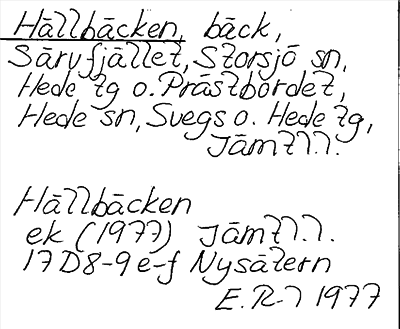 Hällbäcken, bäck,
Särvfjället, Storsjö sn,
Hede tg o. Prästbordet,
Hede sn, Svegs o. Hede tg,
Jämtl.l.
Hällbäcken
ek (1977) Jämtl.l.
17D8-9e-f Nysätern
E.R-l 1977